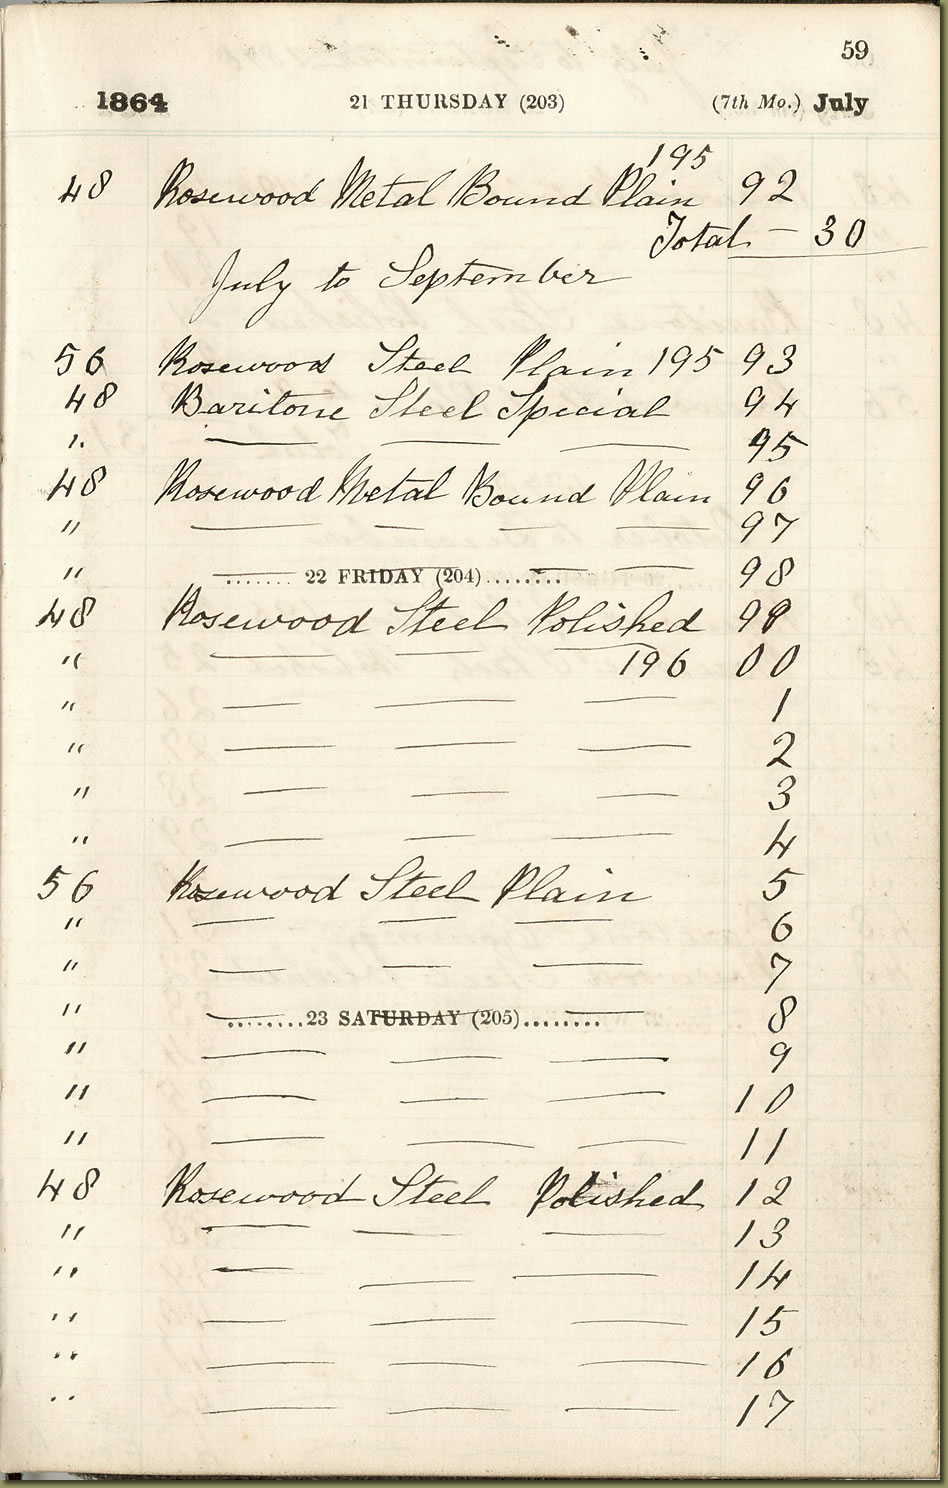 59
1864 21 THURSDAY (203) (7th Mo.) July
195
48 Rosewood Metal Bound Plain 92
Total — 30
July to September
56 Rosewood Steel Plain 195 93
48 Baritone Steel Special 94
" — — — 95
48 Rosewood Metal Bound Plain 96
" — — — — 97
" — — — — 98
....... 22 FRIDAY (204) ........
48 Rosewood Steel Polished 99
" — — — 196 00
" — — — 1
" — — — 2
" — — — 3
" — — — 4
56 Rosewood Steel Plain 5
" — — — 6
" — — — 7
" — — — 8
........ 23 SATURDAY (205) ........
" — — — 9
" — — — 10
" — — — 11
48 Rosewood Steel Polished 12
" — — — 13
" — — — 14
" — — — 15
" — — — 16
" — — — 17